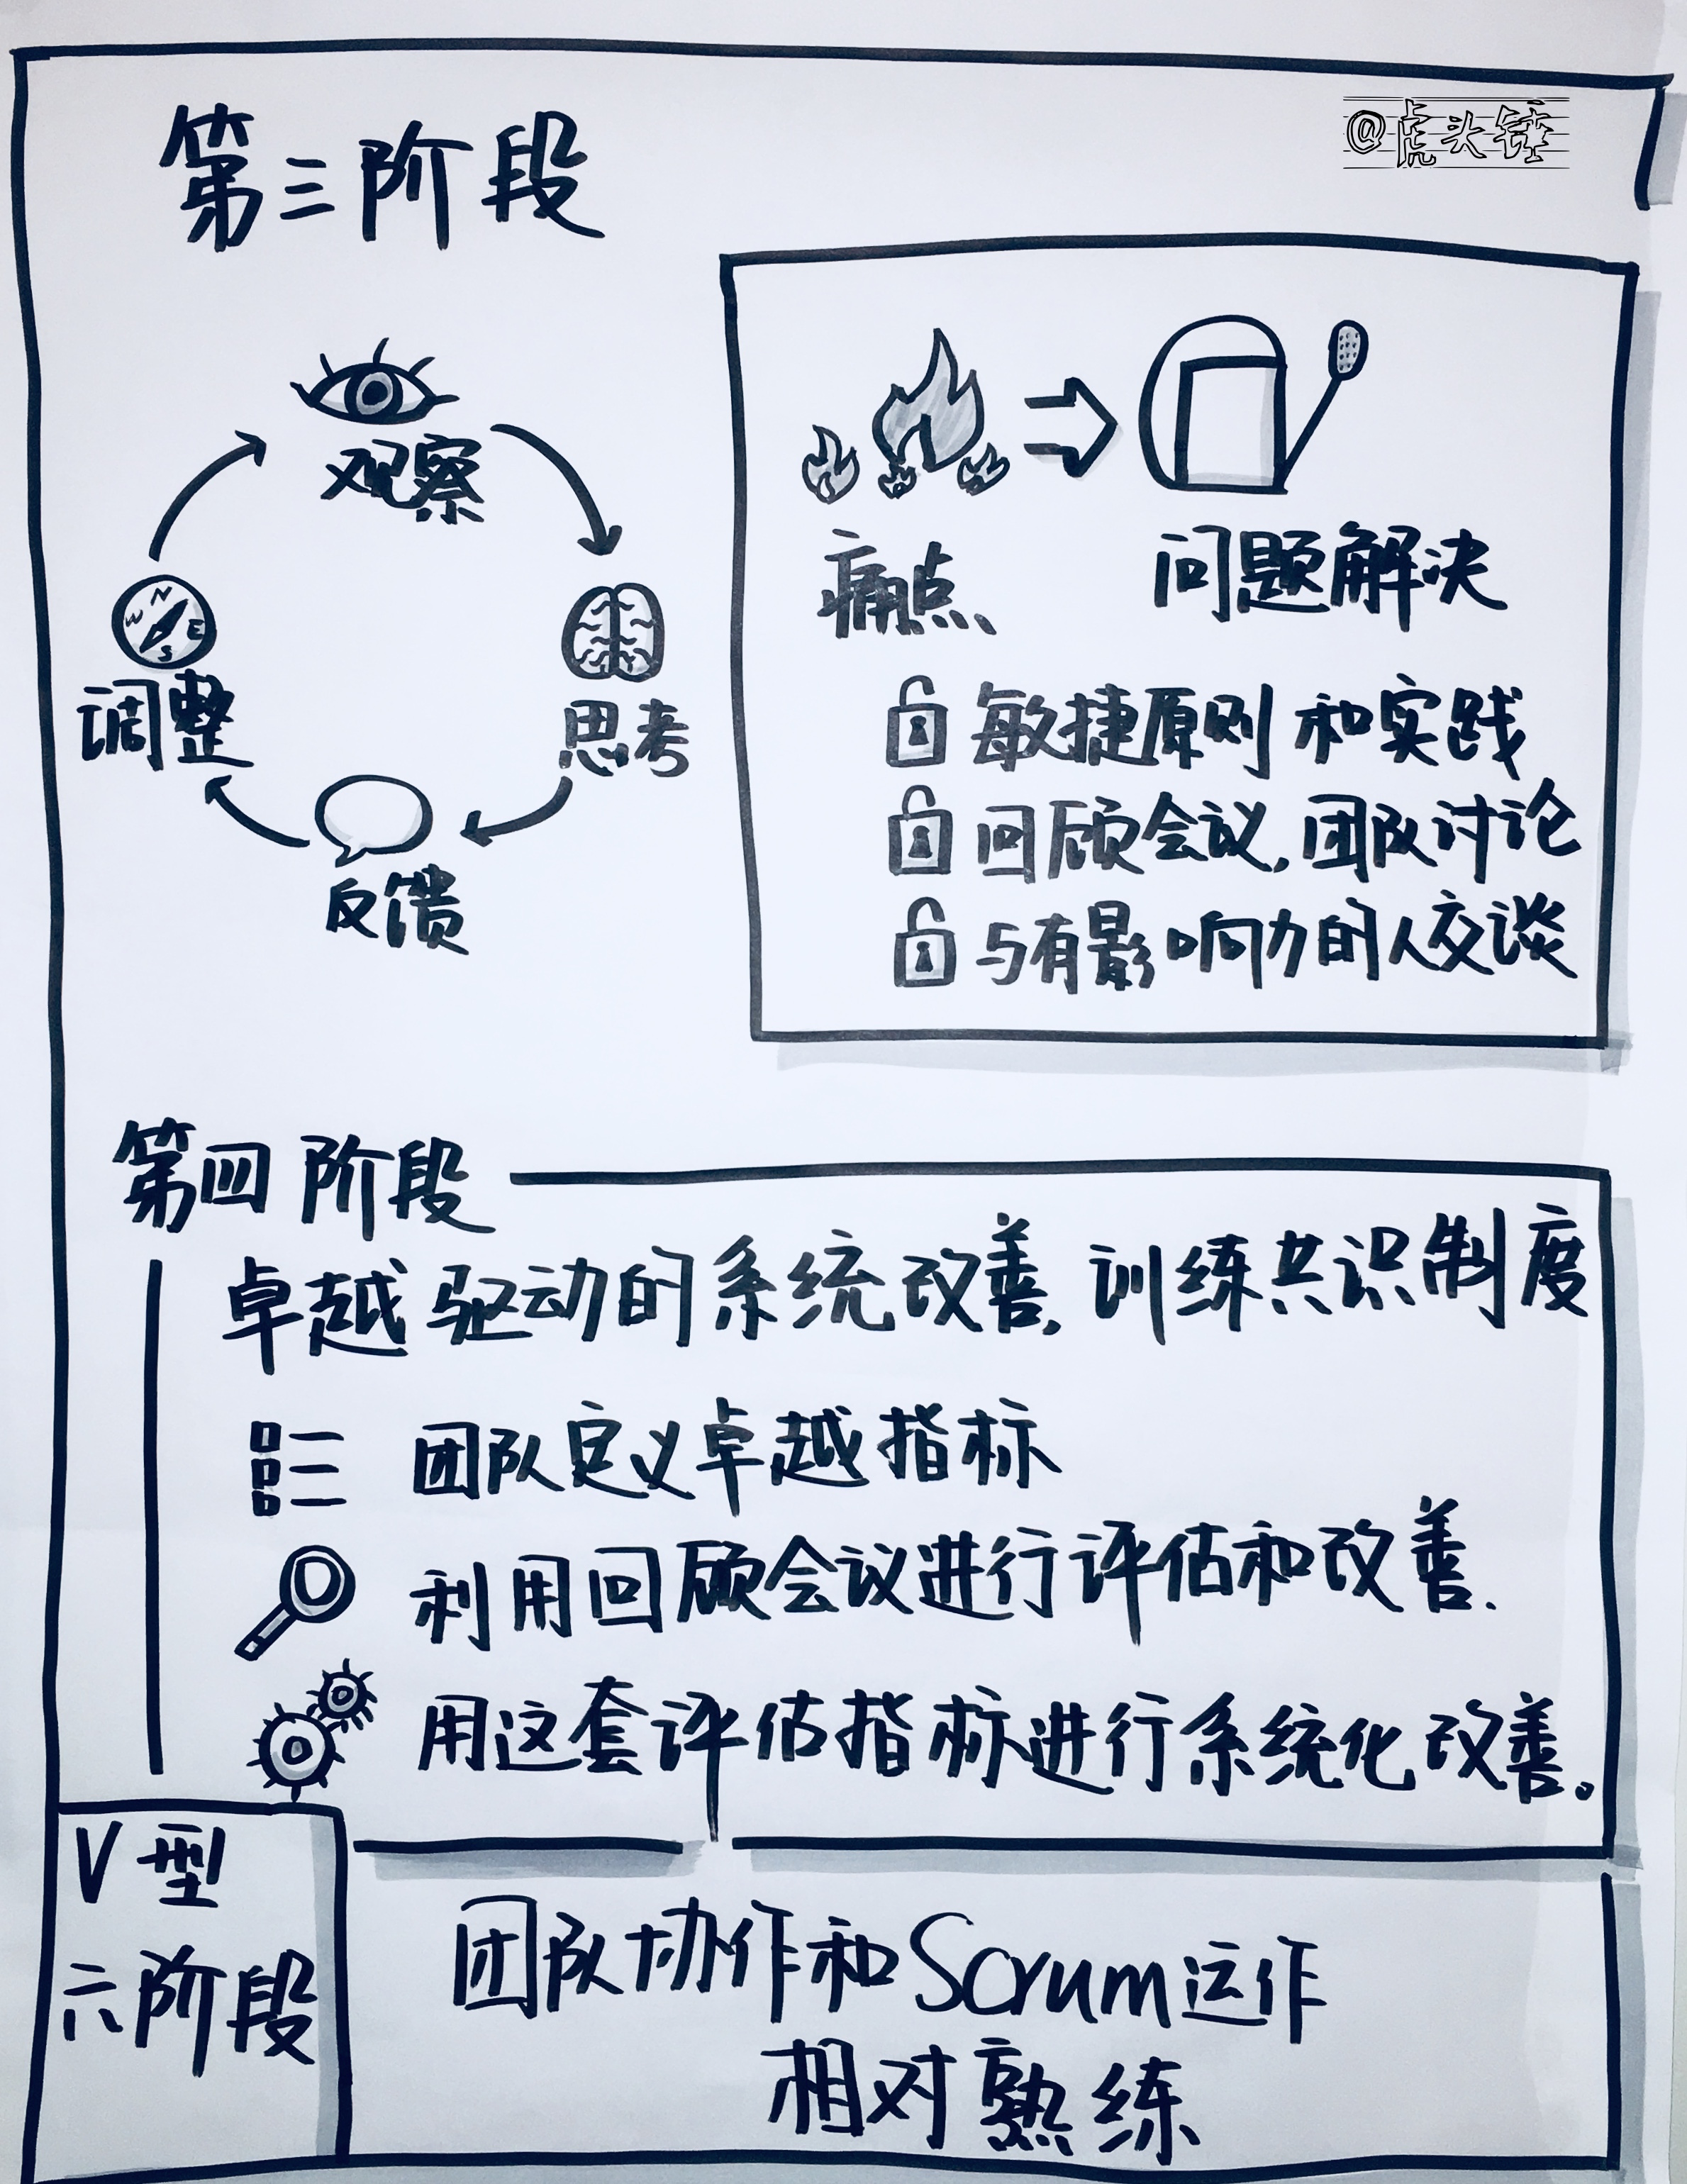 @虎头锤
第三阶段
观察
思考
反馈
调整
N
W
E
S
痛点
问题解决
敏捷原则和实践
回顾会议,团队讨论
与有影响力的人交谈
第四阶段
卓越驱动的系统改善,训练共识制度
团队定义卓越指标
利用回顾会议进行评估和改善.
用这套评估指标进行系统化改善。
V型
六阶段
团队协作和Scrum运作
相对熟练